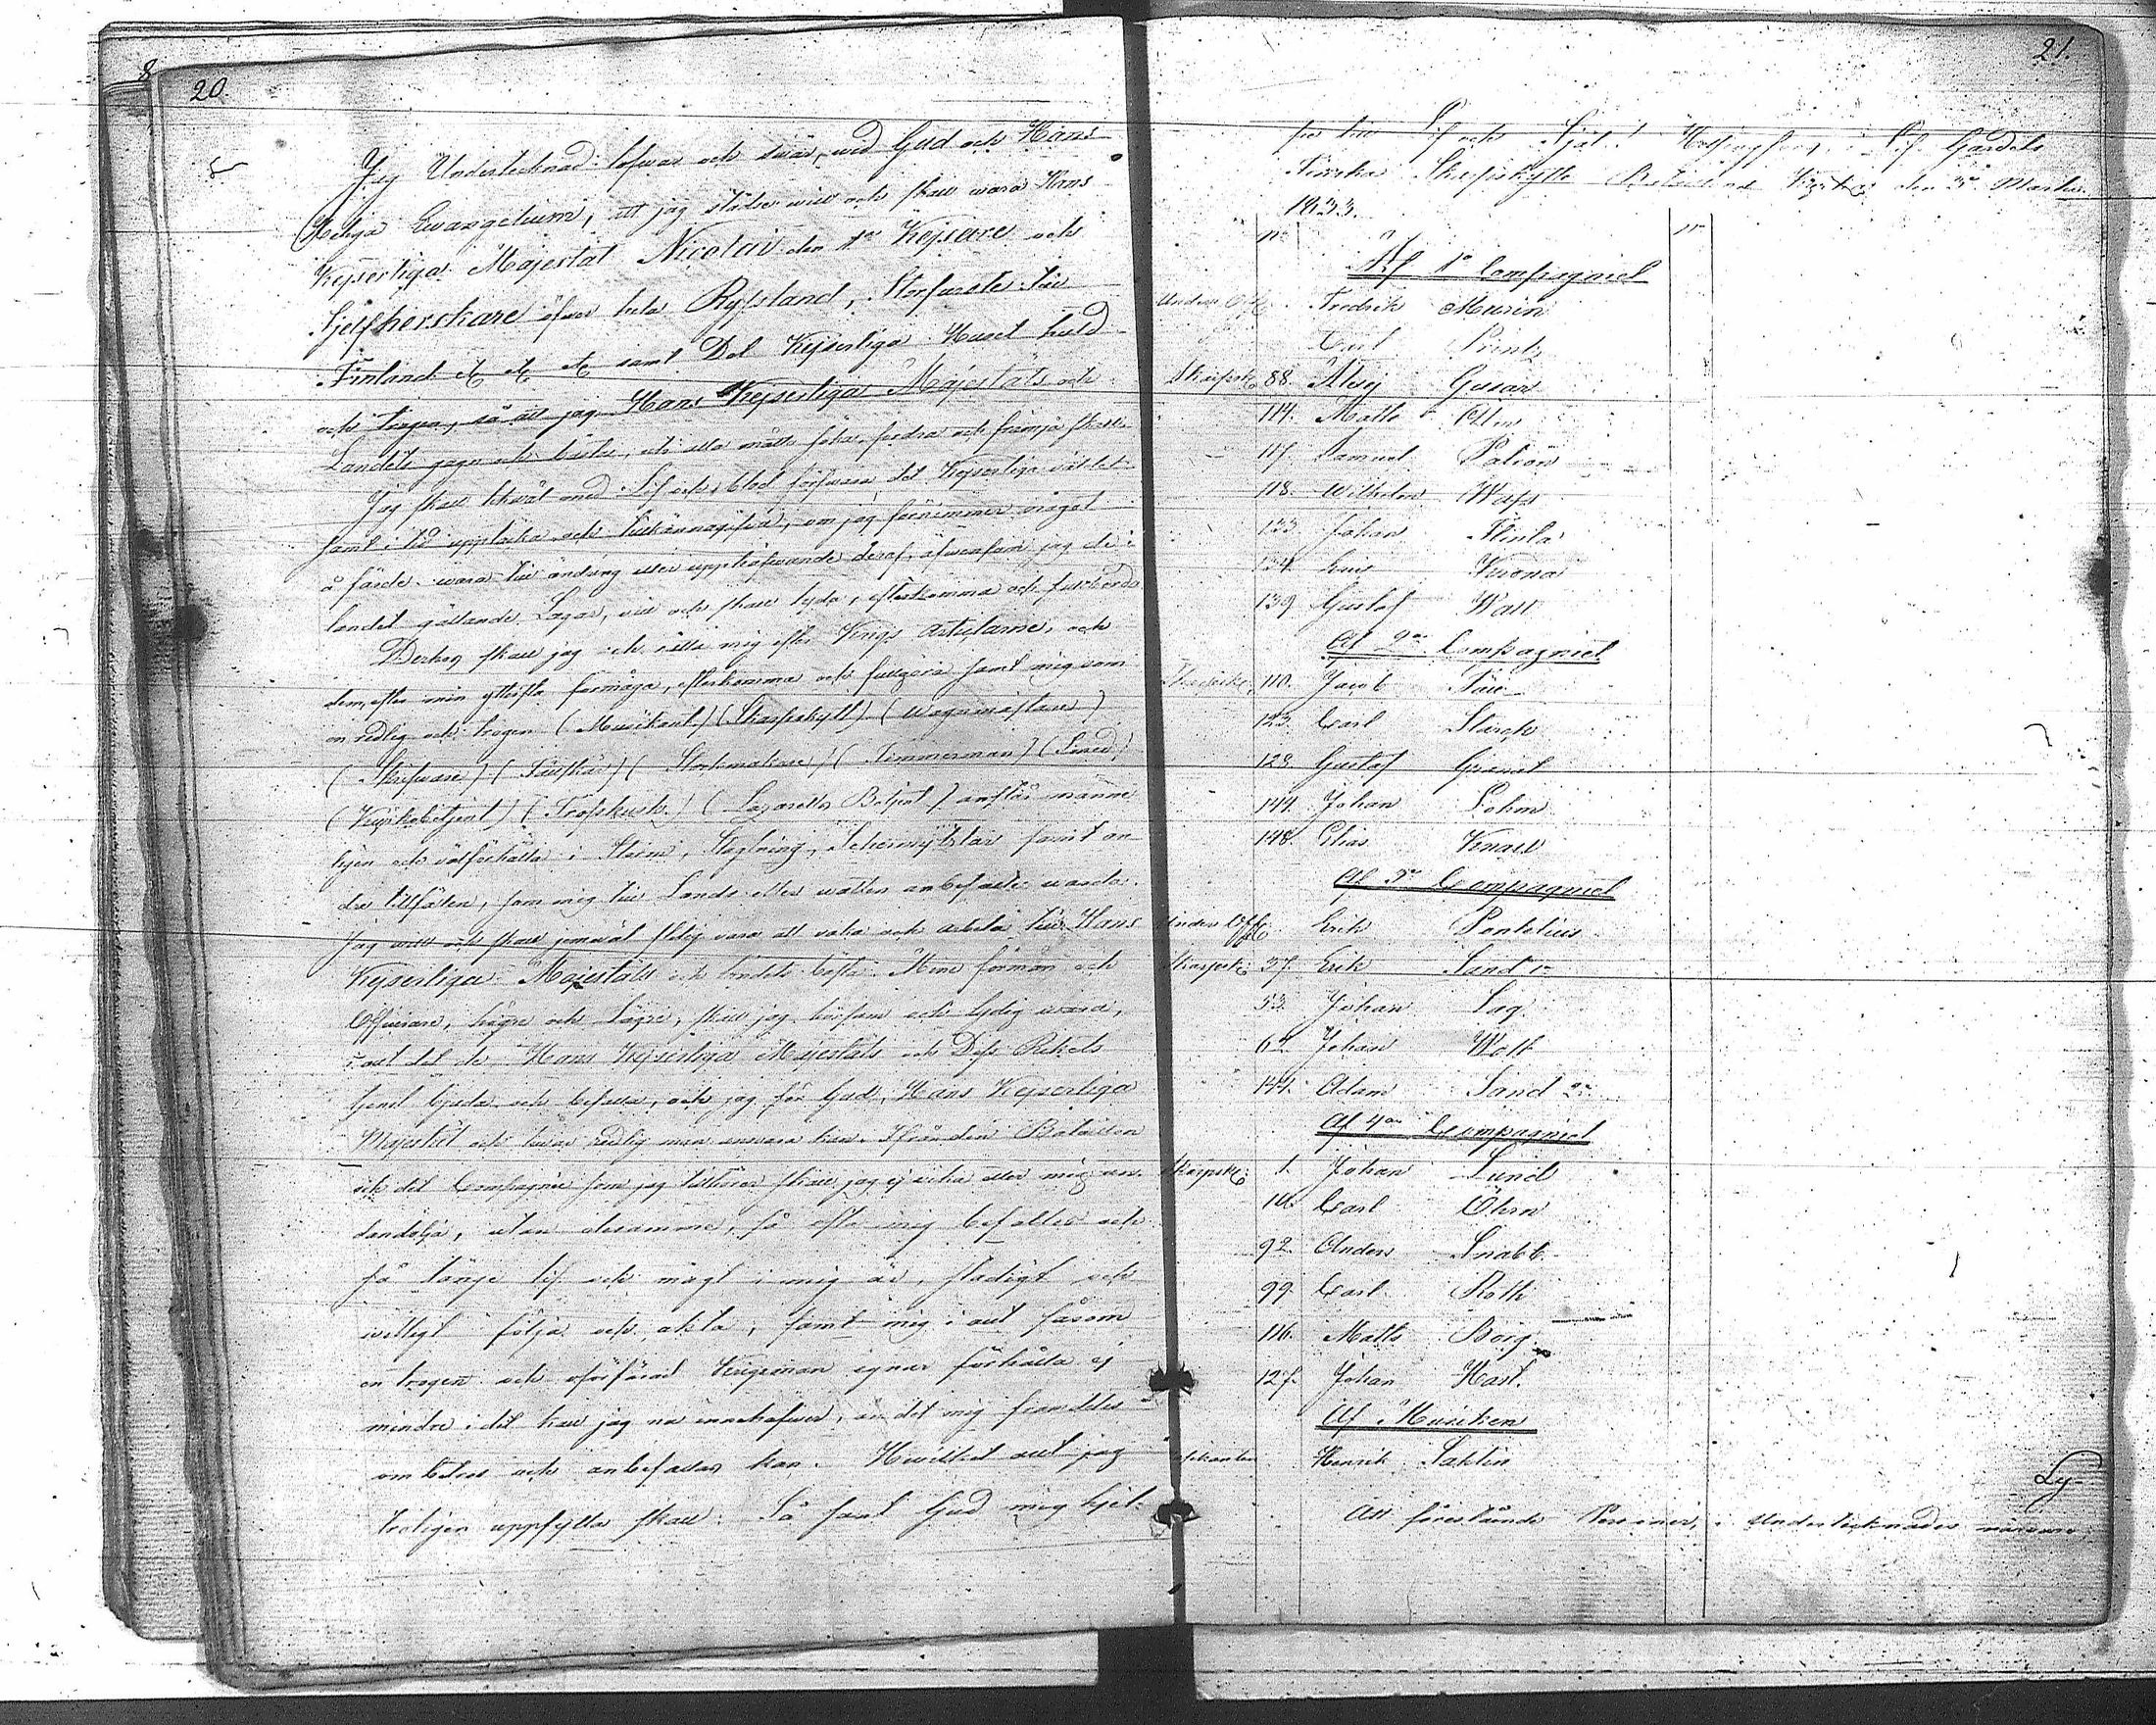 8
20.
Jag Undertecknad lofwar och swär, wid Gud och Hans
Heliga Evangelium, att jag städse will och skall wara Hans
Kejserliga Majestät Nicolai den 1e Kejsare och
Sjelfherskare öfwer hela Ryssland, Storfurste till
Finland &c &c &c samt Det Kejserliga Huset huld
och trogen, så att jag Hans Kejserliga Majestäts och
Landets gagn och bästa, uti alla mått söka, fordra och främja skall.
Jag skall likwäl med Lif och blod förswara det Kejserliga wäldet
samt i tid upptäcka och tillkännagifwa, om jag förnimmer något
å färde wara till ändring eller upphäfwande deraf, äfwensom jag de i
landet gällande Lagar, will och skall lyda, efterkomma och fullborda
Derhos skall jag ock rätta mig efter Krigs Articlarne, och
dem, efter min yttersta förmåga, efterkomma och fullgöra samt mig som
en redlig och trogen (Musikant) (Skarpskytt) (Wagnmästare)
(Skrifware) (Fältskär) (Stockmakare) (Timmerman) (Smed)
(Kyrkobetjent) (Trosskusk) (Lazaretts Betjent) anstår manne-
ligen och wälförhålla i Storm, Slagtning, Schermytslar samt an-
dra tillfällen, som mig till Lands eller watten anbefaltes warda.
Jag will och skall jemwäl flitig vara att vaka och arbeta till Hans
Kejserliga Majestäts och landets bästa. Mine förmän och
Officerare, högre och lägre, skall jag hörsam och lydig wara,
i allt det de Hans Kejserliga Majestäts och Dess Rikets
tjenst bjuda och befalla, och jag för Gud, Hans Kejserliga
Majestät och hwar redlig man answara kan. Ifrån den Bataillon
och det Compagnie som jag tillhörer skall jag ej wika eller mig un-
dandölja, utan desamme, så ofta mig befalles och
så länge lif och magt i mig är, stadigt och
willigt följa och akta, samt mig i allt såsom
en trogen och oförfärad Krigsman egnar förhålla ej
mindre i det kall jag nu innehafwer, än det mig framdeles
ombetros och anbefallas kan. Hwilket allt jag
troligen uppfylla skall. Så sant Gud mig hjel-
21.
per till Lif och Själ! Helsingfors, i Lif Gardets
Finska Skarpskytte Bataillons den 3e Martii
1833.
No
No
Af 1a Compagniet
Under Off. Fredrik Murin
Carl Printz
Skarpsk. 88. Alexej Gusar
114. Matts Alm
117. Samuel
118. Wilhelm Wass
133. Johan Flinta
134. Krona
139. Gustaf Wall
Af 2a Compagniet
Skarpsk. 110. Jacob
123. Carl Starck
128. Gustaf Granat
144. Johan Lohm
148. Elias Knall
Af 3e Compagniet
Under Off. Erik Pontelius
Skarpsk. 37. Erik Sand 1e
53. Johan Lag
62. Johan Wolf
144. Adam Sand 2e
Af 4de Compagniet
Skarpsk. 1. Johan Lund
10. Carl Öhrn
92. Anders Snabb
99. Carl Roth
116. Matts Borg
127. Johan Hast.
Af Musiken
Henrik Sahlin
Att förestående Personer, i Undertecknades närvaro,
Ly-